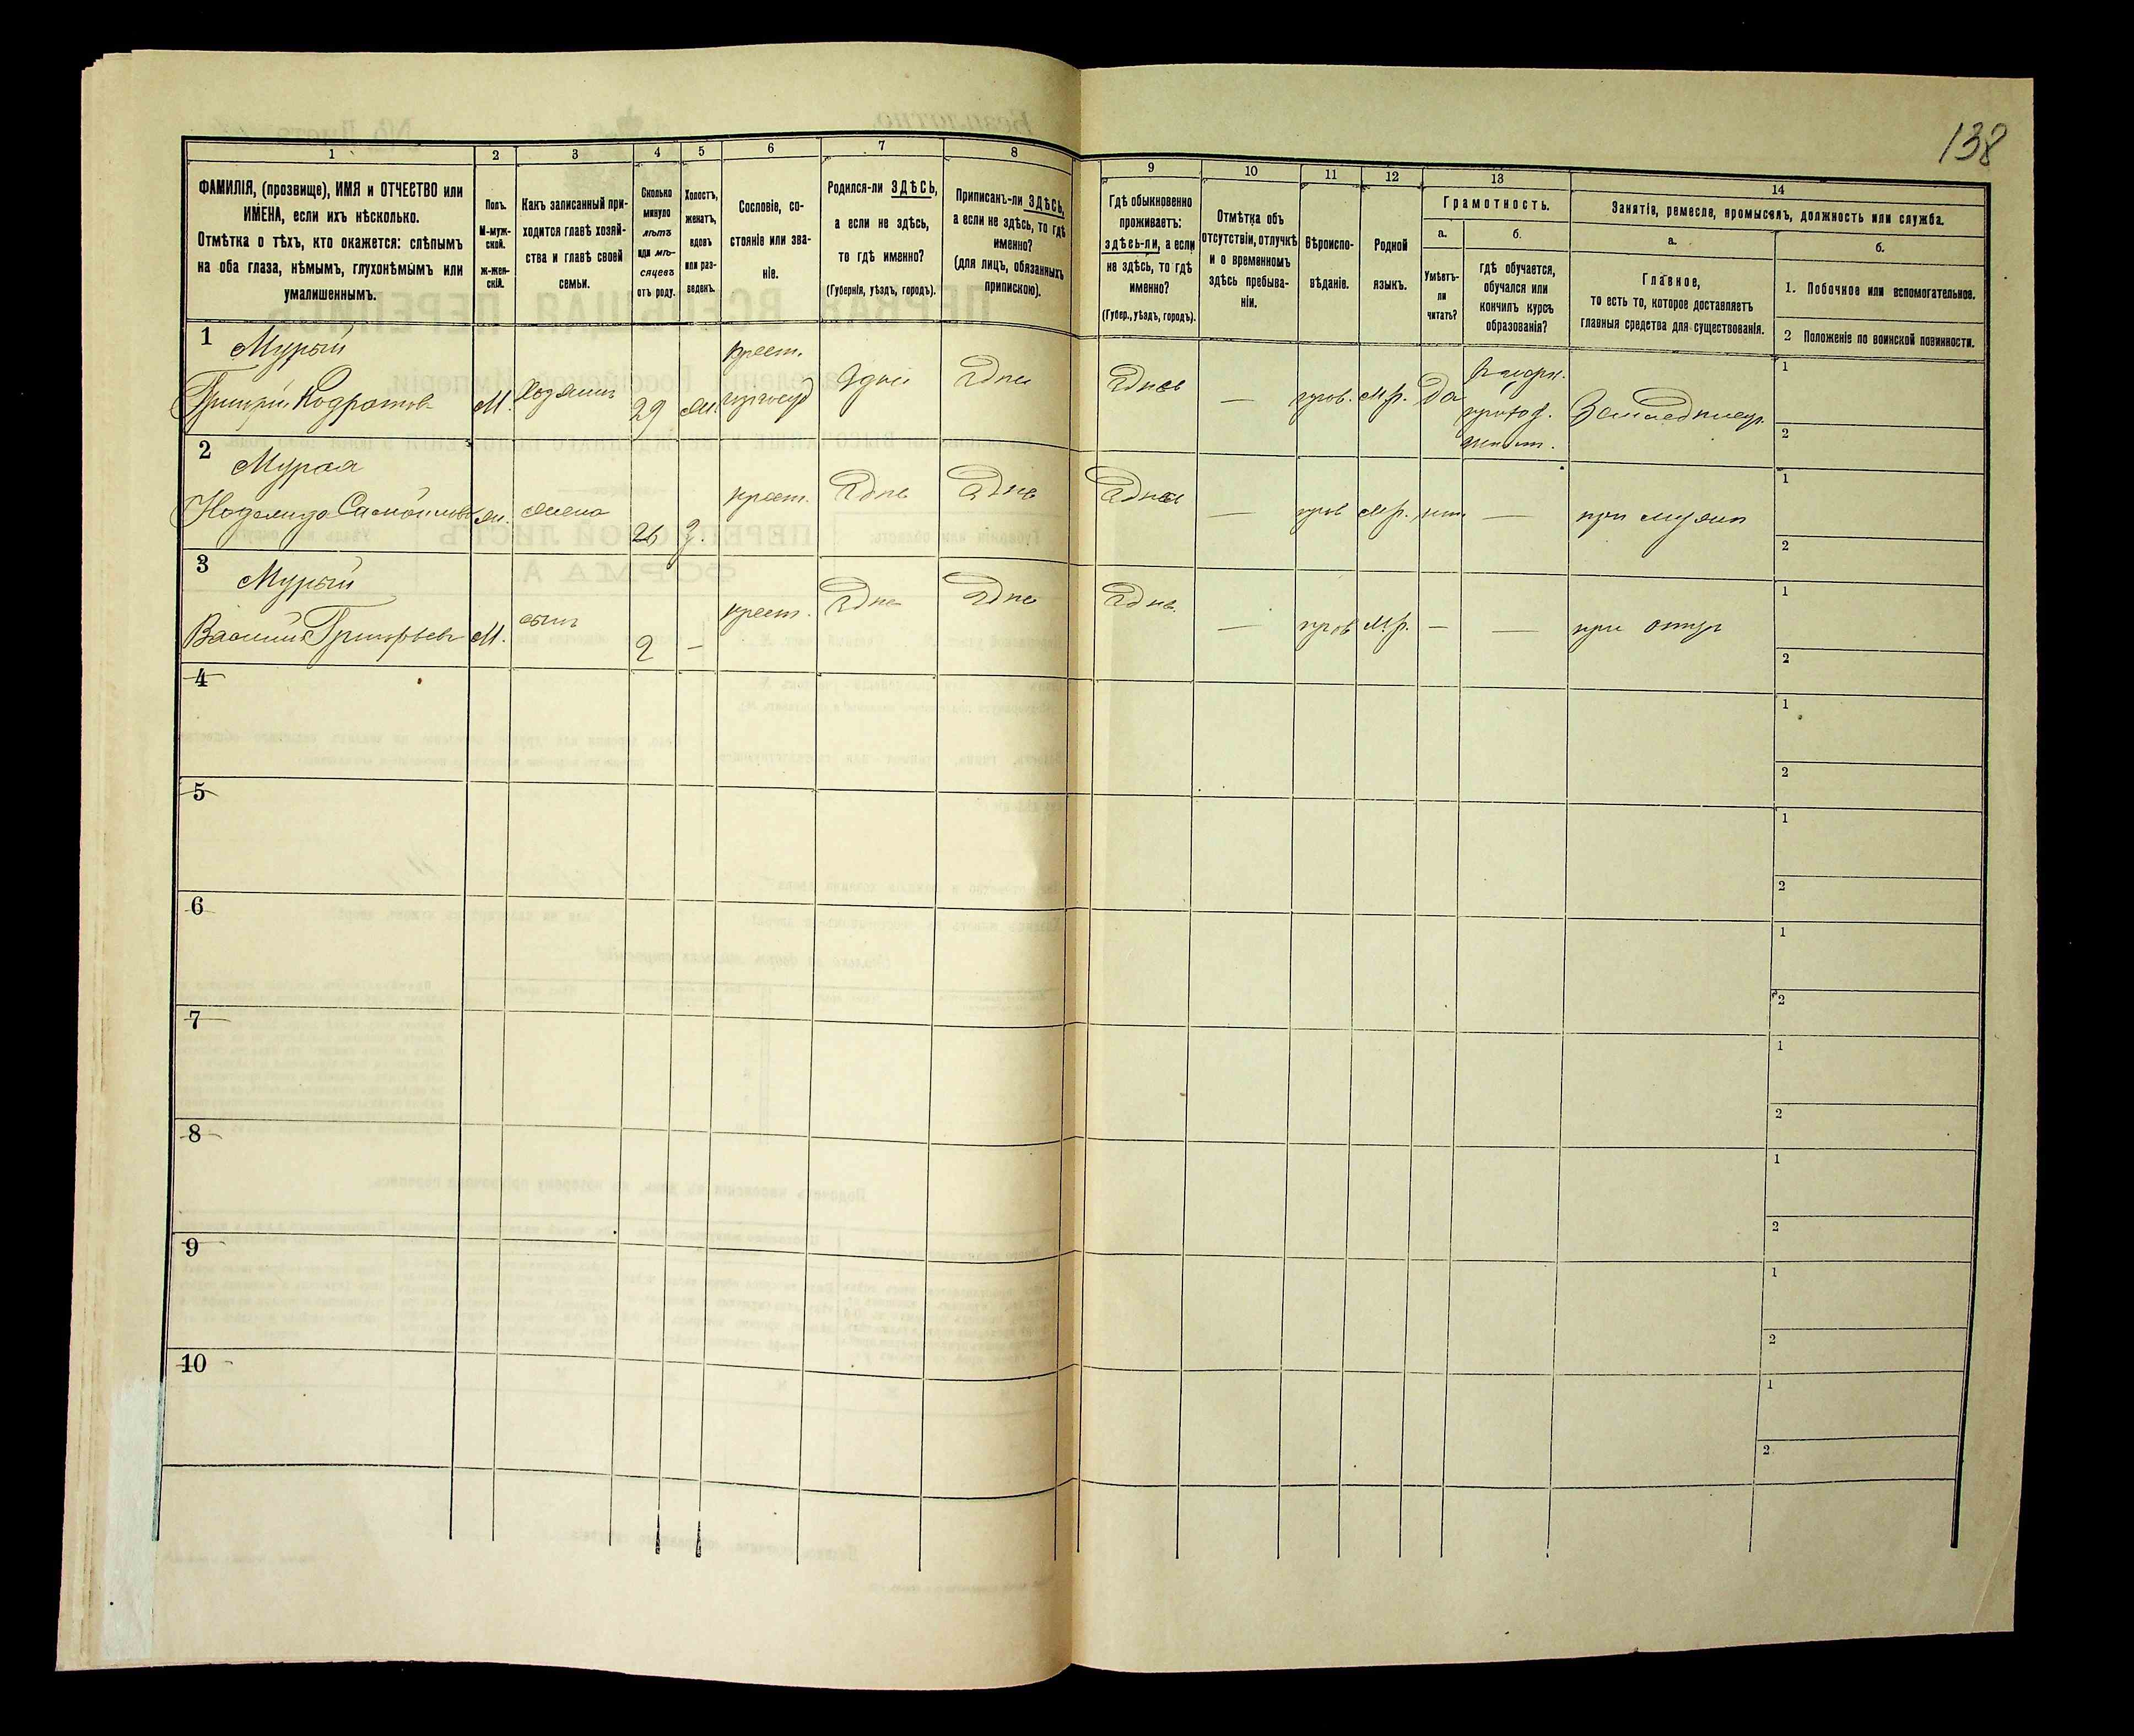 138
1
2
3
4
5
6
7
8
9
10
11
12
13
14
ФАМИЛІЯ, (прозвище), ИМЯ и ОТЧЕСТВО или
ИМЕНА, если ихъ нѣсколько.
Отмѣтка о тѣхъ, кто окажется: слѣпымъ
на оба глаза, нѣмымъ, глухонѣмымъ или
умалишеннымъ.
Полъ.
М-муж-
ской.
Ж-жен-
скій.
Какъ записанный при-
ходится главѣ хозяй-
ства и главѣ своей
семьи.
Сколько
минуло
лѣтъ
или мѣ-
сяцевъ
отъ роду.
Холостъ,
женатъ,
вдовъ
или раз-
веденъ.
Сословіе, со-
стояніе или зва-
ніе.
Родился-ли ЗДѢСЬ,
а если не здѣсь,
то гдѣ именно?
(Губернія, уѣздъ, городъ).
Приписанъ-ли ЗДѢСЬ,
а если не здѣсь, то гдѣ
именно?
(для лицъ, обязанныхъ
припискою).
Гдѣ обыкновенно
проживаетъ:
здѣсь-ли, а если
не здѣсь, то гдѣ
именно?
(Губер., уѣздъ, городъ).
Отмѣтка объ
отсутствіи, отлучкѣ
и о временномъ
здѣсь пребыва-
ніи.
Вѣроиспо-
вѣданіе.
Родной
языкъ.
Грамотность.
а.
Умѣетъ-
ли
читать?
б.
гдѣ обучается,
обучался или
кончилъ курсъ
образованія?
Занятія, ремесло, промыселъ, должность или служба.
а.
Главное,
то есть то, которое доставляетъ
главныя средства для существованія.
б.
1. Побочное или вспомогательное.
2 Положеніе по воинской повинности.
1
Мурый
Григорій Кодратовъ
М.
Хозяинъ
29
Ж.
крест.
Здѣсь
Здѣсь
Здѣсь
—
прав.
М.р.
Да
Земледѣлецъ
1
2
2
Мурая
Надежда Самойлова
Ж.
жена
26
З.
крест.
Здѣсь
Здѣсь
Здѣсь
—
прав
М.р.
нѣт.
—
при мужѣ
1
2
3
Мурый
Василій Григорьевъ
М.
сынъ
2
—
крест.
Здѣсь
Здѣсь
Здѣсь
—
прав
М.р.
—
—
при отцѣ
1
2
4
1
2
5
1
2
6
1
2
7
1
2
8
1
2
9
1
2
10
1
2